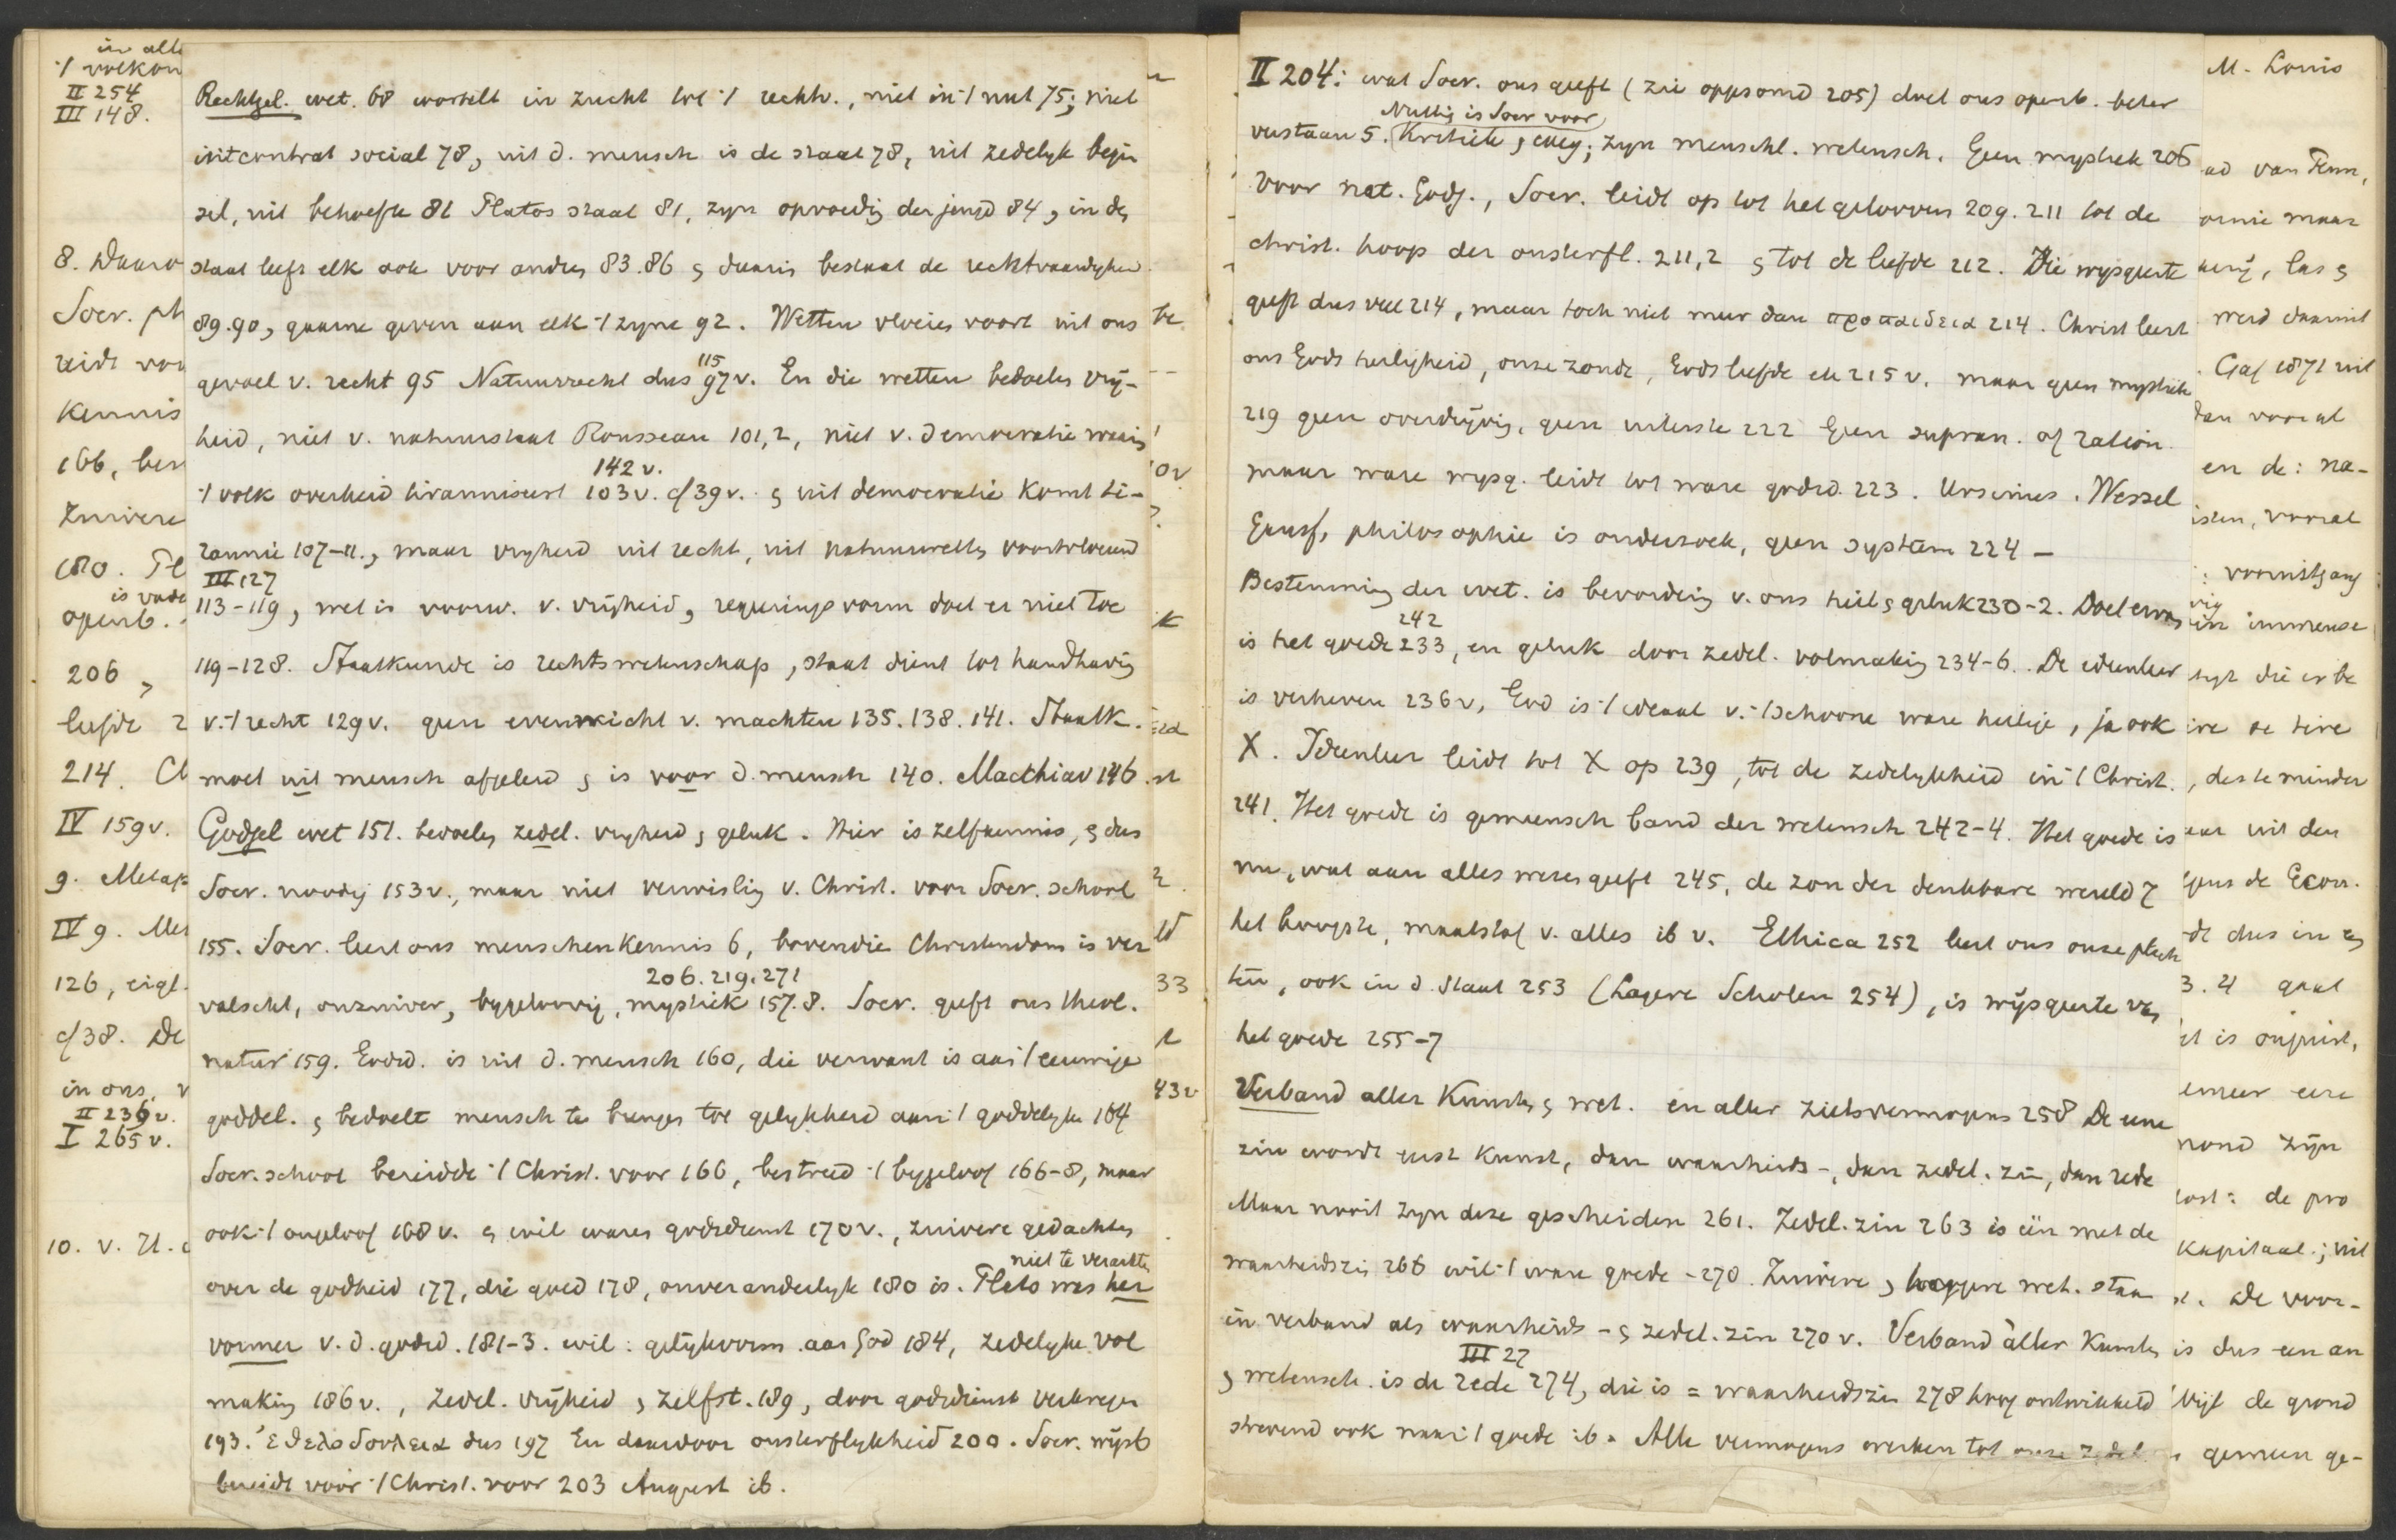 in all
-/ volkom
II 254
III 148.
8. Daaro
Socr. ph
reidt voo
Kennis
166, ber
Zuivere
180. Pl
is vade
openb.
206,
liefde 2
214. Ch
IV 159 v.
9. Metap
IV 9. Met
126, eigl.
cf 38. De
in ons, v
II 236 v.
I 265 v.
10. v. H.
Rechtsgel. wet. 68 wortelt in zucht tot -/ rechtv., niet in -/ nut 75; niet
in contrat social 78, uit d. mensch is de staat 78, uit zedelyk begin
sel, uit behoefte 81 Platos staat 81, zyn opvoedig der jeugd 84, in de
staat leeft elk ook voor andre 83.86 & daarin bestaat de rechtvaardigheid
89.90, gaarne geven aan elk -/ zyne 92. Wetten vloeien voort uit ons
115
gevoel v. recht 95 Natuurrecht dus 97 v. En die wetten bedoelen vrij-
heid, niet v. natuurstaat Rousseau 101,2, niet v. democratie waarin
142 v.
-/ volk overheid tiranniseert 103 v. cf 39 v. & uit democratie komt ti-
rannie 107-11., maar vryheid uit recht, uit natuurwetten voortvloeiend
III 127
113-119, wet is voorw. v. vrijheid, regeringsvorm doet er niet toe
119-128. Staatkunde is rechtswetenschap, staat dient tot handhavig
v. -/ recht 129 v. geen evenwicht v. machten 135.138.141. Staatk.
moet uit mensch afgeleid & is voor d. mensch 140. Macchiav 146
Godgel wet 151. bedoelen zedel. vryheid & geluk. Hier is zelfkennis, & dus
Socr. noodig 153 v., maar niet verwislig v. Christ. voor Socr. school
155. Socr. leert ons menschenkennis 6, bovendie Christendom is ver
206.219.271
valscht, onzuiver, bygeloovig, mystiek 157.8. Socr. geeft ons theol.
natur 159. Godsd. is uit d. mensch 160, die verwant is aan -/ eeuwige
goddel. & bedoelt mensch te brengen tot gelykheid aan -/ goddelyke 164
Socr. school bereidde -/ Christ. voor 166, bestreed -/ bygeloof 166-8, maar
ook -/ ongeloof 168 v. & wil waren godsdienst 170 v., zuivere gedachten
niet te verachten
over de godheid 177, die goed 178, onveranderlyk 180 is. Plato was her
vormer v. d. godsd. 181-3. wil: gelijkvorm. aan God 184, zedelyke vol
making 186 v., zedel. vrijheid & zelfst. 189, door godsdienst verkregen
193. ἐθελοδουλεια dus 197 En daardoor onsterflykheid 200. Socr. wijsb
bereidt voor -/ Christ. voor 203 August ib.
be
k
st
33
43 v
II 204: wat Socr. ons geeft (zie opgesomd 205) doet ons openb. beter
Nuttig is Socr voor
verstaan 5. Kritiek & exeg; zyn menschl. wetensch. Geen mystiek 206
Voor nat. Godg., Socr. leidt op tot het gelooven 209. 211 tot de
christ. hoop der onsterfl. 211,2 & tot de liefde 212. Die wysgeerte
geeft dus veel 214, maar toch niet meer dan προπαιδεια 214. Christ leert
ons Gods heiligheid, onze zonde, Gods liefde en 215 v. maar geen mystiek
219 geen overdrijvig, geen uiterste 222 Geen supran. of ration.
maar ware wysg. leidt tot ware godsd. 223. Ursinus. Wessel
Gansf, philosophie is onderzoek, geen system 224 —
Bestemming der wet. is bevorderig v. ons heil & geluk 230-2. Doel ervan
242
is het goede 233, en geluk door zedel. volmakig 234-6. De ideenleer
is verheven 236 v, God is -/ ideaal v. -/ schoone ware heilige, ja ook
X. Ideenleer leidt tot X op 239, tot de zedelykheid in -/ Christ.
241. Het goede is gemeensch band der wetensch 242-4. Het goede is
nu, wat aan alles wezen geeft 245, de zon der denkbare wereld 7
het hoogste, maatstaf v. alles ib v. Ethica 252 leert ons onze plich
ten, ook in d. staat 253 (Lagere Scholen 254), is wijsgeerte van
het goede 255-7
Verband aller Kunsten & wet. en aller zielsvermogens 258 De eene
zin wordt eerst kunst, dan waarheids-, dan zedel. zin, dan rede
Maar nooit zyn deze gescheiden 261. Zedel. zin 263 is één met de
waarheidszin 266 wil -/ ware goede -270. Zuivere & hoogere wet. staan
in verband als waarheids- & zedel. zin 270 v. Verband aller Kunsten
III 27
& wetensch. is de rede 274, die is = waarheidszin 278 hoog ontwikkeld
strevend ook naar -/ goede ib. Alle vermogens werken tot onze zedel
M. Louis
ad van Fenn,
omie maar
werd daaruit
Gaf 1871 uit
dan vooral
en de: na-
isten, vooral
: vooruitgang
immense
zyn die er be
, des te minder
aar uit den
gens de Econ.
dt dus in
3. 4 gaat
et is onjuist,
emeer eere
mond zijn
ost: de pro
Kapitaal; uit
De voor-
is dus een an
blijft de grond
gemeen ge-